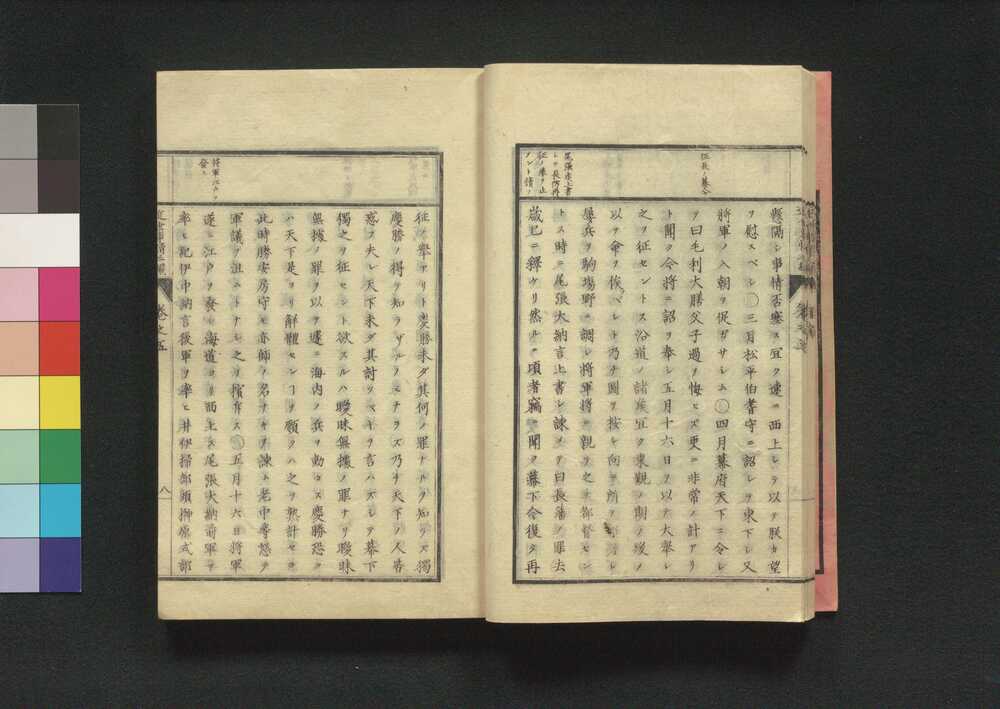 征長ノ幕令
懸隔シ事情否塞ス宜ク速ニ西上シヲ以テ朕カ望
ヲ慰スベシ〇三月松平伯耆守ニ詔シヲ東下シ又
将軍ノ入朝ヲ促ガサシム〇四月幕府天下ニ令シ
ヲ曰毛利大膳父子過ヲ悔ヒズ更ニ非常ノ計アリ
ト聞ク今将ニ詔ヲ奉シ五月十六日ヲ以テ大挙シ
之ヲ征セントス沿道ノ諸侯宜ク東観ノ期ヲ緩メ
以テ命ヲ俟ベシト乃チ図ヲ按シ向フ所ヲ
尾張老上書
シテ長防再
征ノ挙ヲ止
メント請フ
兵ヲ駒場野ニ調シ将軍将ニ親ラ之ヲ都督セン
トス時ニ尾張大納言上書シ諫メテ曰長藩ノ罪去
歳已ニ釋ケリ然ルヲ頃者竊ニ聞ク幕下今復タ再
征ノ挙アリト慶勝未ダ其何ノ罪ナルヲ知ラズ獨
慶勝ノ得テ知ラザルノミナラズ乃チ天下ノ人皆
惑フ夫レ天下未ダ其討ツベキヲ言ハズシテ幕下
獨之ヲ征セント欲スルハ曖昧無據ノ軍ナリ曖昧
無據ノ罪ヲ以テ遽ニ海内ノ兵ヲ動カス慶勝恐ク
ハ天下是ヨリ解體センコヲ願クハ之ヲ熟計セヨト
此時勝安房守モ亦師ノ名ナキヲ諫ム老中等怒テ
将軍江戸ヲ
發ス
軍議ヲ沮ムトナシ之ヲ擯斥ス〇五月十六日将軍
遂ニ江戸ヲ發シ海道ヨリ西上ス尾張大納言前軍ヲ
率ヒ紀伊中納言後軍ヲ率ヒ井伊掃部頭榊原式部
巻之五
八